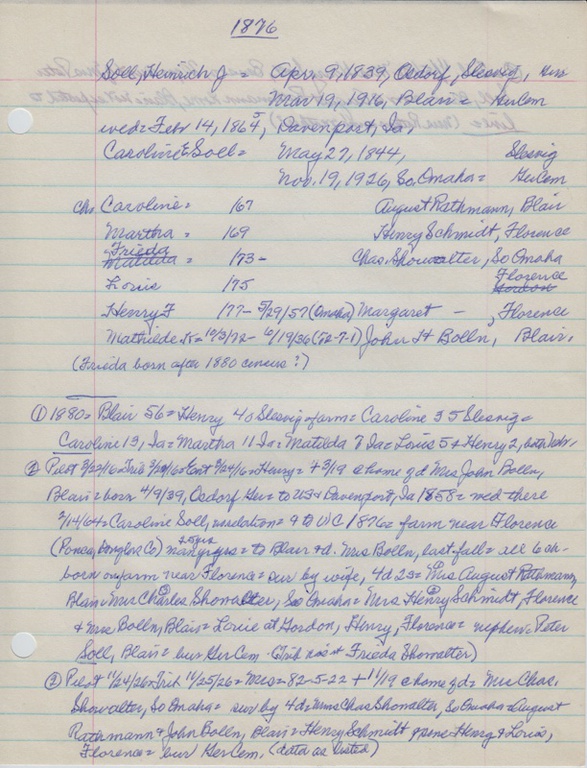 1876
Soll, Heinrich J = Apr. 9, 1839, Osdorf, Slesvig,
Mar 19, 1916, Blair = GerCem
wed = Febr 14, 1864, Davenport, Ia
Caroline E Soll = May 27, 1844, Slesvig
Nov. 19, 1926, So. Omaha = GerCem
chs Caroline = '67 August Rathmann, Blair
Martha = '69 Henry Schmidt, Florence
Frieda
Matilda = '73 - Chas. Showalter, So Omaha
Louie '75 Florence Gordon
Henry F '77 - 5/29/57 (Omaha) Margaret - , Florence
Mathilde = 10/3/72 - 6/19/36 (F2-7-1) John H Bolln, Blair,
(Frieda born after 1880 census?)
① 1880 = Blair 56 = Henry 40 Slesvig = farm = Caroline 35 Slesvig =
Caroline 13, Ia = Martha 11 Ia = Matilda 7 Ia = Louis 5 + Henry 2, both Nebr.
② Pilot 3/22/16 = Trib = Ent 3/24/16 = Henry = +3/19 @ home of d Mrs John Bolln,
Blair = born 4/9/39, Osdorf Ger = to US = Davenport, Ia 1858 = wed there
2/14/64 = Caroline Soll, no relation = to WC 1876 = farm near Florence
(Ponca, Douglas Co) many yrs = to Blair + d. Mrs Bolln, last fall = all 6 ch
born on farm near Florence = sur by wife, 4d 2s = Mrs August Rathmann,
Blair = Mrs Charles Showalter, So Omaha = Mrs Henry Schmidt, Florence
+ Mrs Bolln, Blair = Louie at Gordon, Henry, Florence = nephew = Peter
Soll, Blair = bur GerCem (Trib Frieda Showalter)
③ Pilot 11/24/26 = Trib 11/25/26 = Mrs = 82-5-22 + 11/19 @ home of d = Mrs Chas.
Showalter, So Omaha = sur by 4d = Mrs Chas Showalter, So Omaha = August
Rathmann + John Bolln, Blair = Henry Schmidt Henry & Louis,
Florence = bur GerCem. (data as listed)